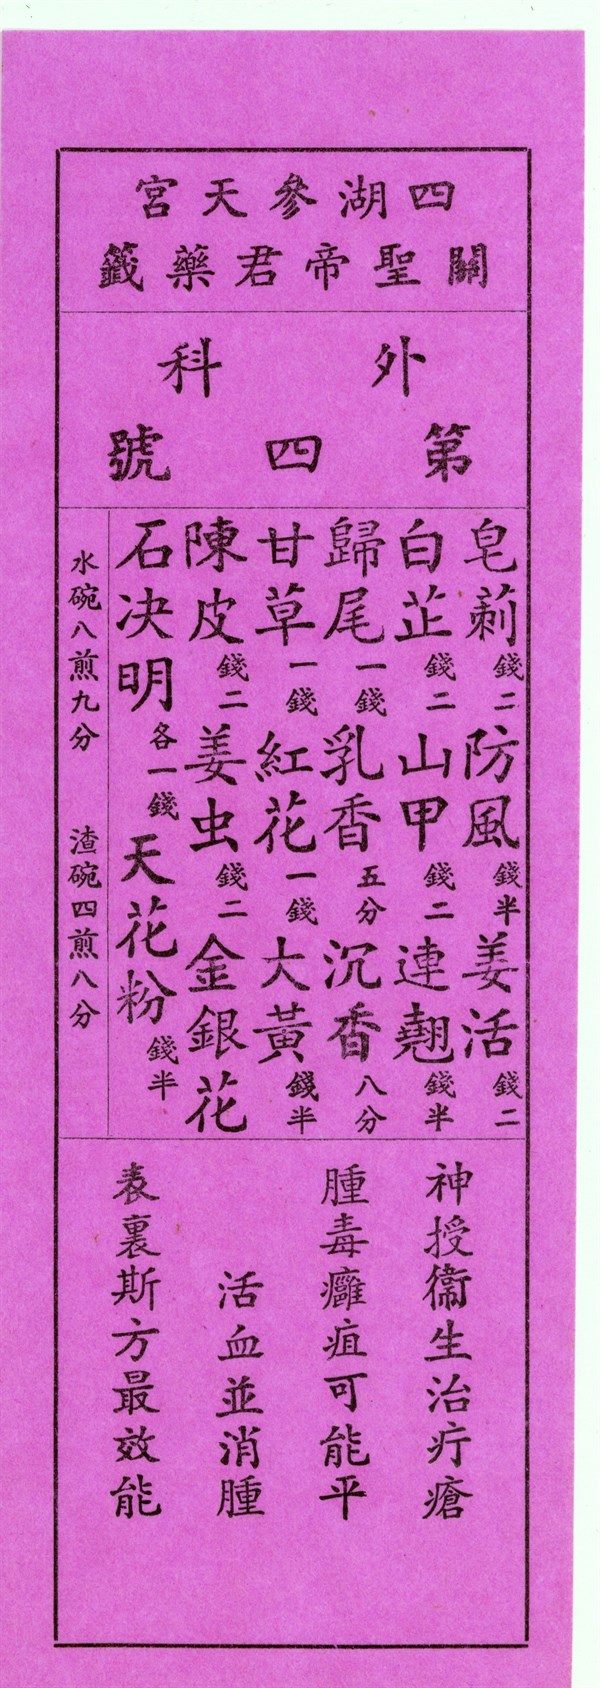 四湖參天宮
關聖帝君藥籤
外科
第四號
皂莿錢二防風錢半姜活錢二
白芷錢二山甲錢二連翹錢半
歸尾一錢乳香五分沉香八分
甘草一錢紅花一錢大黃錢半
陳皮錢二姜虫錢二金銀花
石决明各一錢天花粉錢半
水碗八煎九分 渣碗四煎八分
神授衛生治疔瘡
腫毒癰疽可能平
活血並消腫
表裏斯方最效能